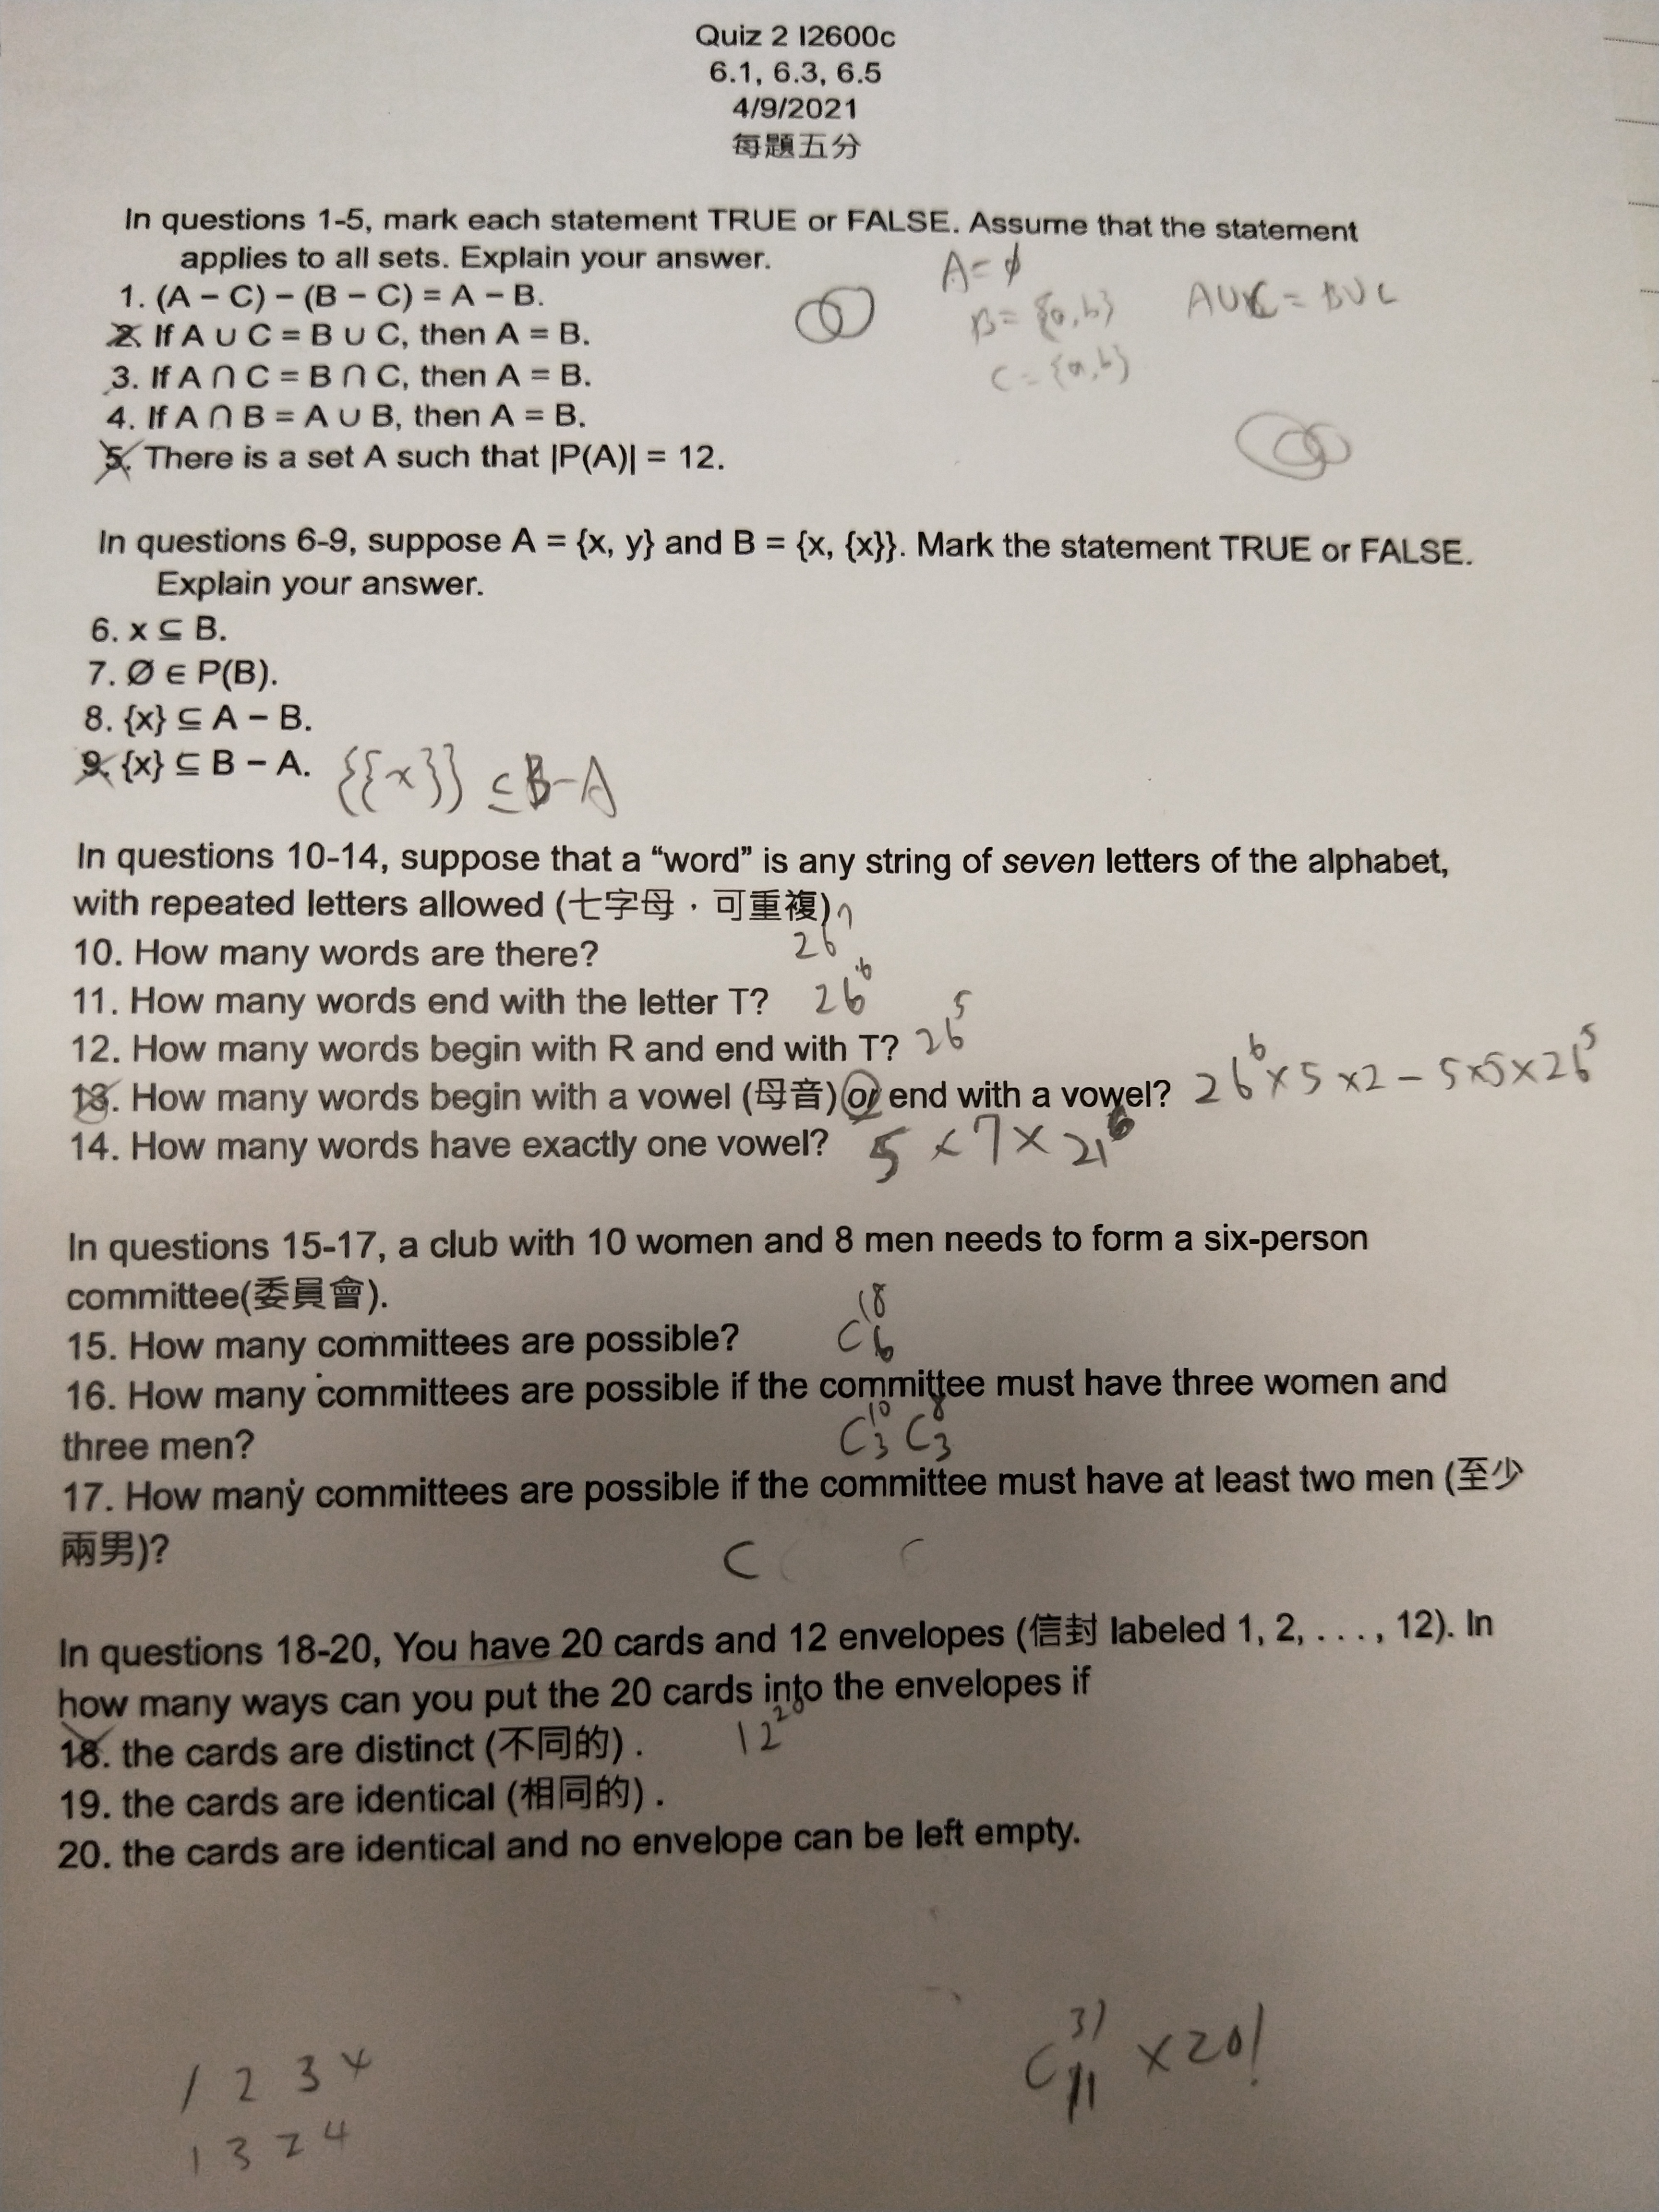 Quiz 2 I2600c
6.1, 6.3, 6.5
4/9/2021
每題五分
In questions 1-5, mark each statement TRUE or FALSE. Assume that the statement
applies to all sets. Explain your answer.
A = ϕ
1. (A – C) – (B – C) = A – B.
B = {a, b}
A∪C = B∪C
2. If A ∪ C = B ∪ C, then A = B.
C = {a, b}
3. If A ∩ C = B ∩ C, then A = B.
4. If A ∩ B = A ∪ B, then A = B.
5. There is a set A such that |P(A)| = 12.
In questions 6-9, suppose A = {x, y} and B = {x, {x}}. Mark the statement TRUE or FALSE.
Explain your answer.
6. x ⊆ B.
7. Ø ∈ P(B).
8. {x} ⊆ A – B.
9. {x} ⊆ B – A. {{x}} ⊆ B – A
In questions 10-14, suppose that a “word” is any string of seven letters of the alphabet,
with repeated letters allowed (七字母，可重複)
10. How many words are there? 26⁷
11. How many words end with the letter T? 26⁶
12. How many words begin with R and end with T? 26⁵
13. How many words begin with a vowel (母音) or end with a vowel? 26⁶×5×2 – 5×5×26⁵
14. How many words have exactly one vowel? 5×7×21⁶
In questions 15-17, a club with 10 women and 8 men needs to form a six-person
committee(委員會).
15. How many committees are possible? C¹⁸₆
16. How many committees are possible if the committee must have three women and
three men? C¹⁰₃ C⁸₃
17. How many committees are possible if the committee must have at least two men (至少
兩男)?
C C
In questions 18-20, You have 20 cards and 12 envelopes (信封 labeled 1, 2, . . . , 12). In
how many ways can you put the 20 cards into the envelopes if
18. the cards are distinct (不同的) . 12²⁰
19. the cards are identical (相同的) .
20. the cards are identical and no envelope can be left empty.
C³¹₁₁ × 20!
1 2 3 4
1 3 2 4